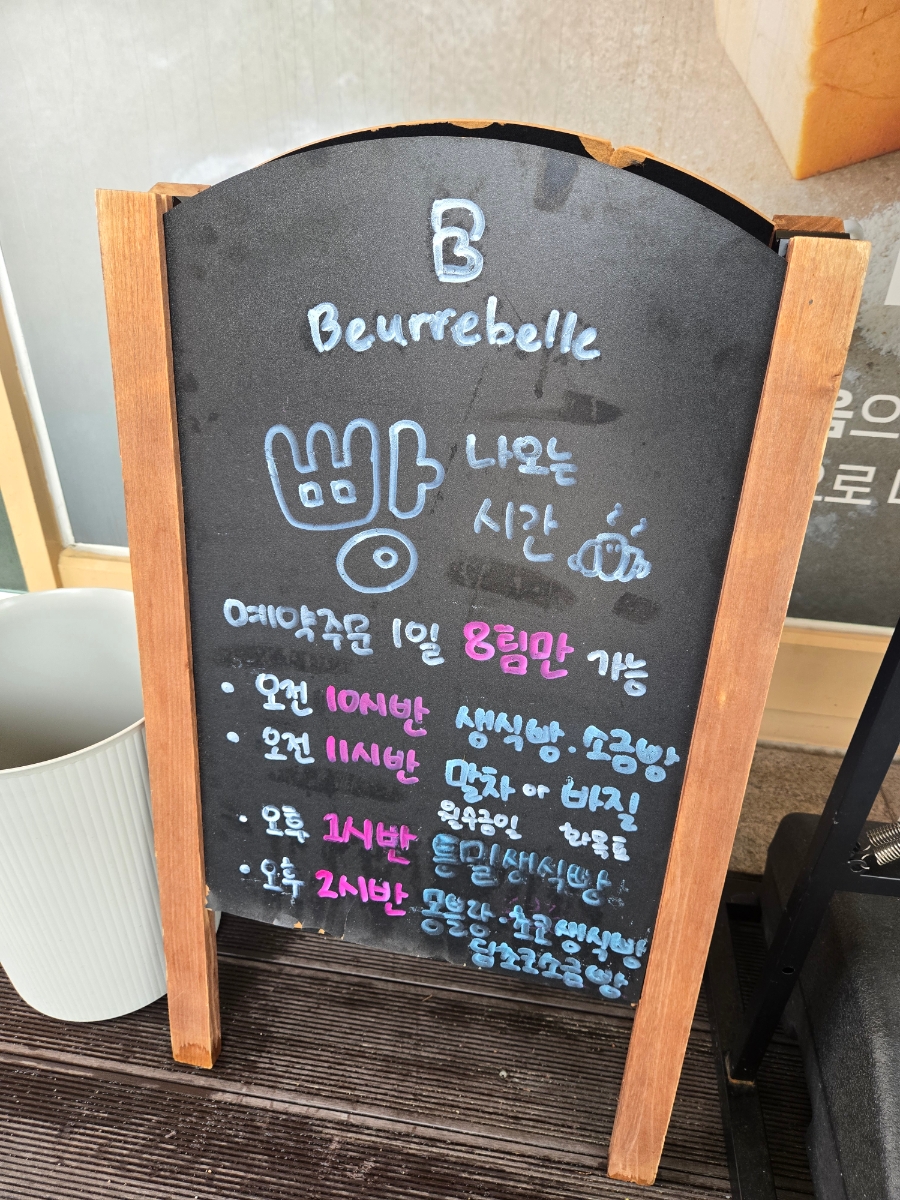 B
B
Beurrebelle
빵 나오는
시간
예약주문 1일 8팀만 가능
• 오전 10시반 생식빵.소금빵
• 오전 11시반 말차 or 바질
월수금일 화목토
• 오후 1시반 통밀생식빵
• 오후 2시반 몽블랑.초코생식빵
딥초코소금빵
음으
으로